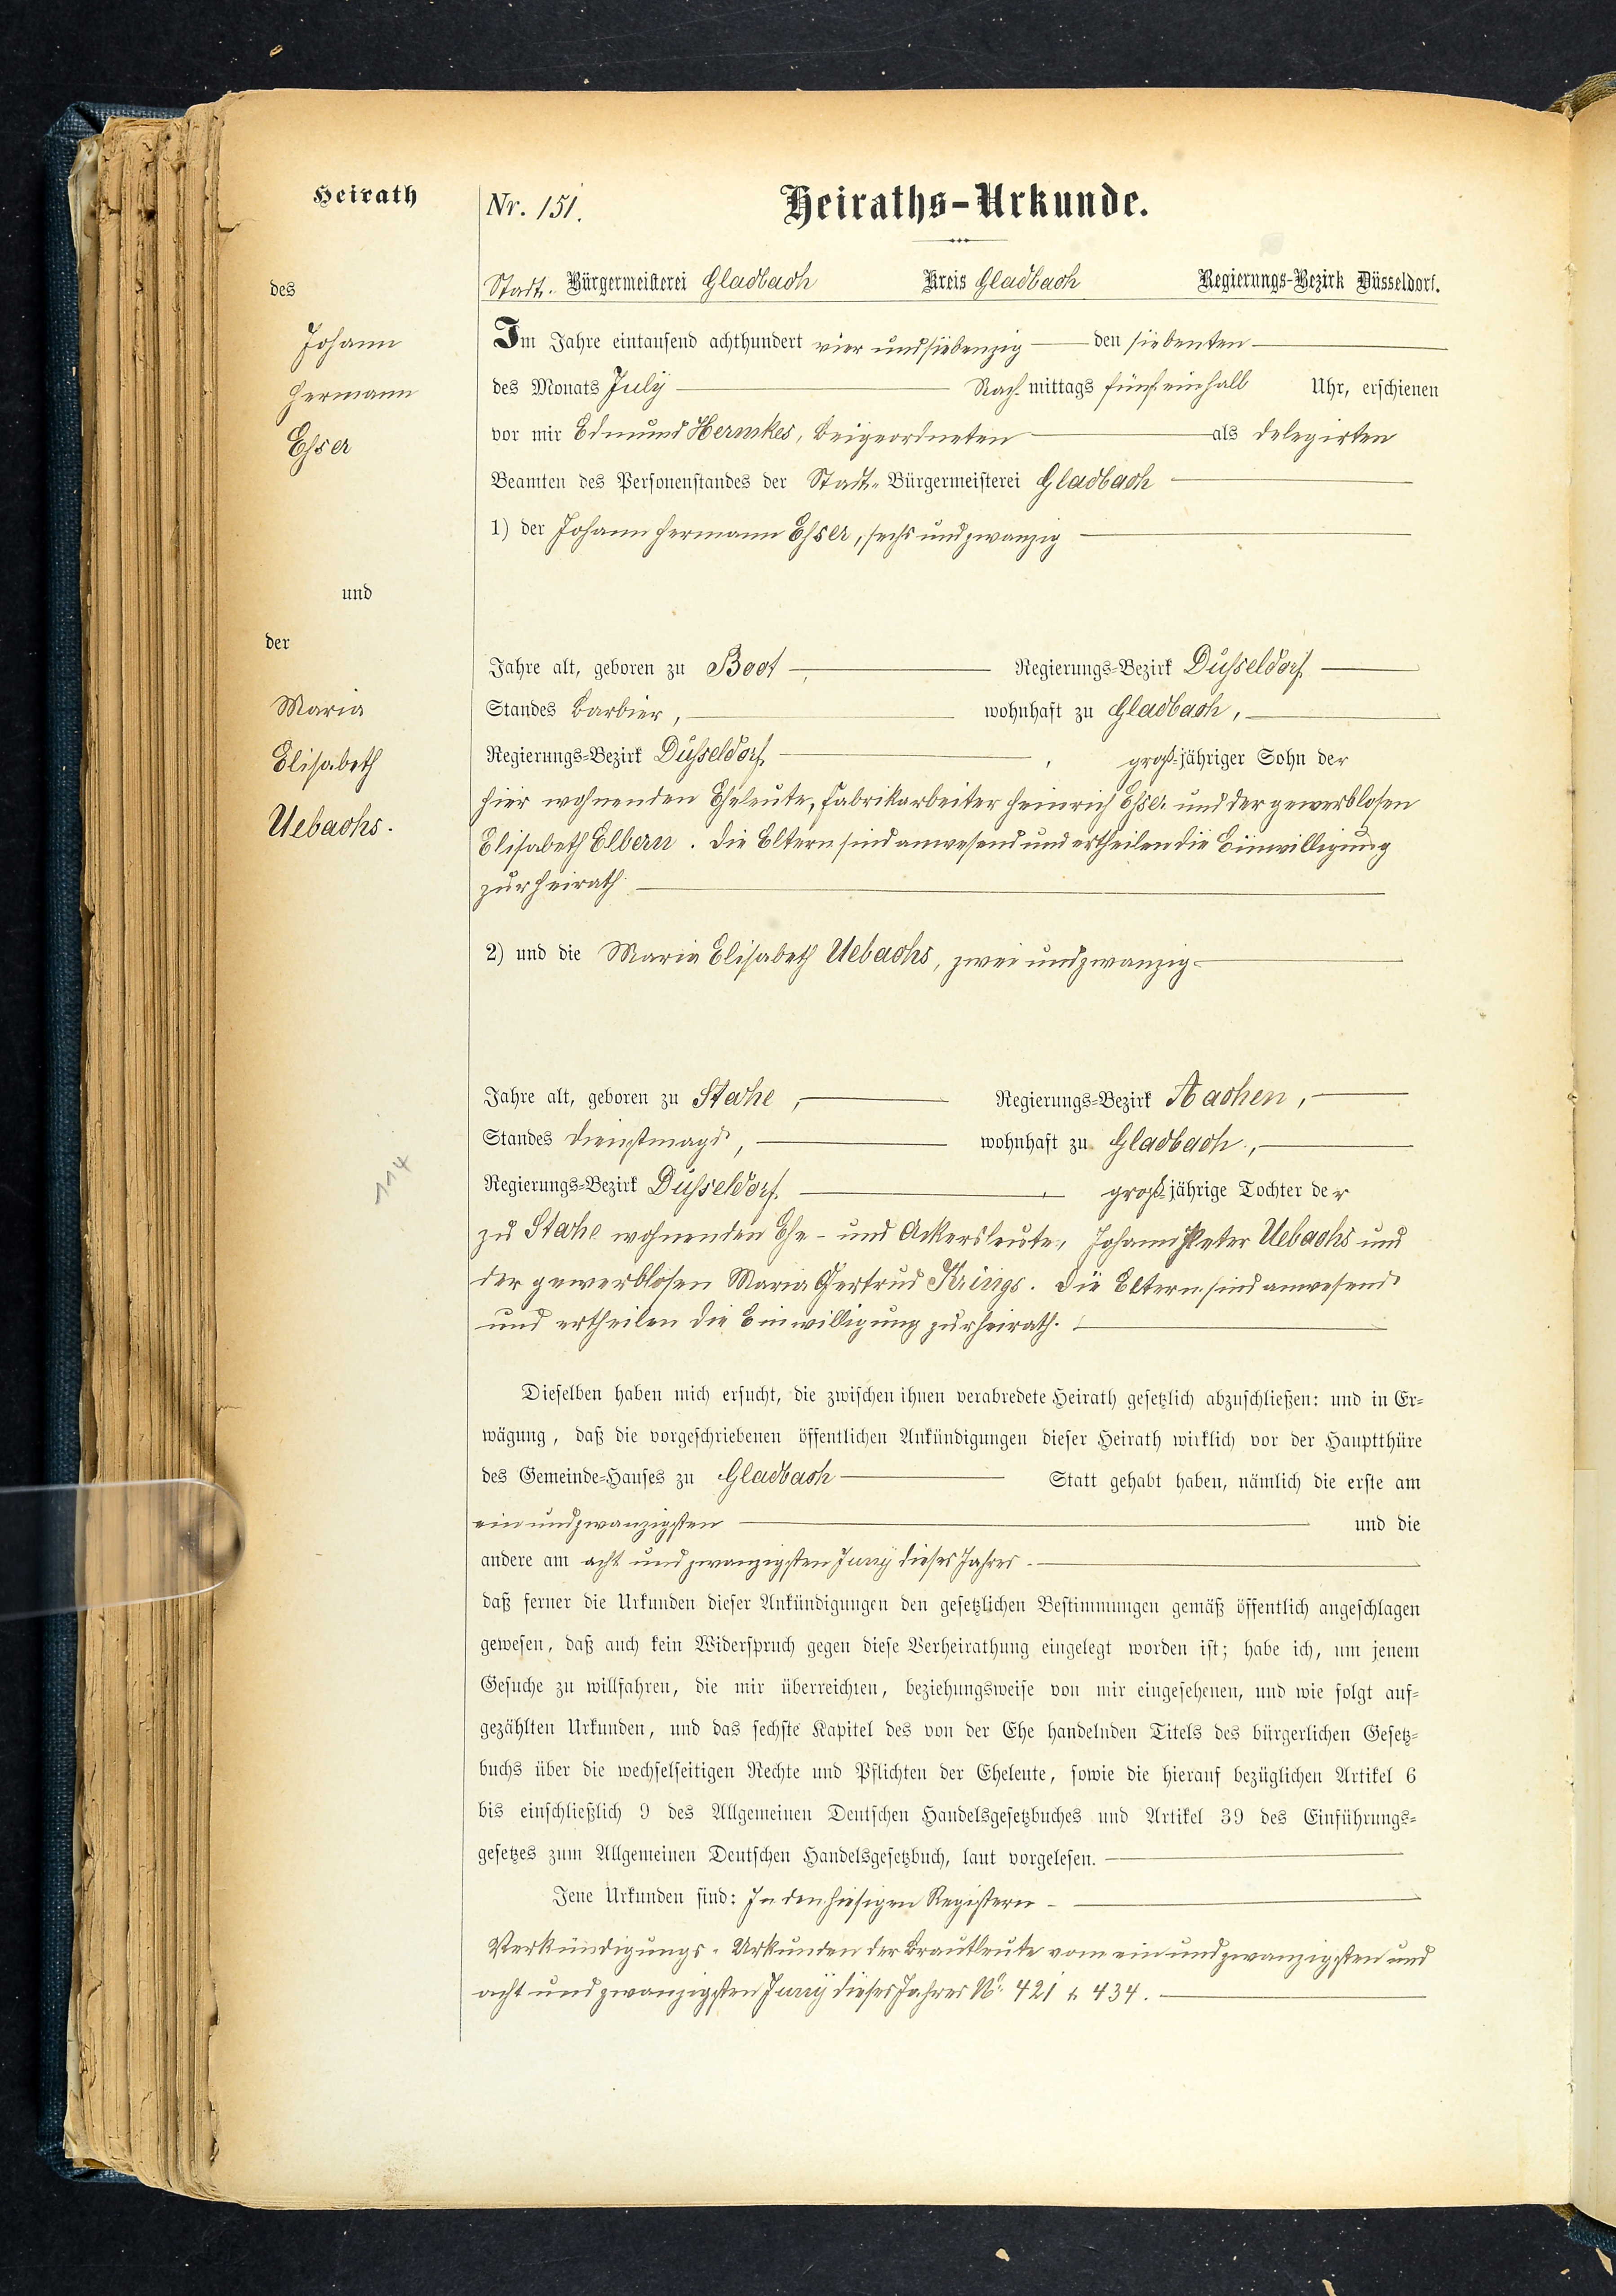 Heirath
des
Johann
Hermann
Esser
und
der
Maria
Elisabeth
Uebachs.
114
Nr. 151.
Heiraths-Urkunde.
Stadt-Bürgermeisterei Gladbach Kreis Gladbach Regierungs-Bezirk Düsseldorf.
Im Jahre eintausend achthundert vier und siebenzig den siebenten
des Monats July Nach-mittags fünf einhalb Uhr, erschienen
vor mir Edmund Hermkes, Beigeordneten als delegirten
Beamten des Personenstandes der Stadt-Bürgermeisterei Gladbach
1) der Johann Hermann Esser, sechs und zwanzig
Jahre alt, geboren zu Boot Regierungs-Bezirk Düsseldorf,
Standes Barbier, wohnhaft zu Gladbach,
Regierungs-Bezirk Düsseldorf, groß-jähriger Sohn der
hier wohnenden Eheleute, Fabrikarbeiter Heinrich Esser und der gewerblosen
Elisabeth Elbern. Die Eltern sind anwesend und ertheilen die Einwilligung
zur Heirath.
2) und die Maria Elisabeth Uebachs, zwei und zwanzig
Jahre alt, geboren zu Stahe, Regierungs-Bezirk Aachen,
Standes Dienstmagd, wohnhaft zu Gladbach,
Regierungs-Bezirk Düsseldorf, groß-jährige Tochter der
zu Stahe wohnenden Ehe- und Ackersleute, Johann Peter Uebachs und
der gewerblosen Maria Gertrud Krings. Die Eltern sind anwesend
und ertheilen die Einwilligung zur Heirath.
Dieselben haben mich ersucht, die zwischen ihnen verabredete Heirath gesetzlich abzuschließen: und in Er-
wägung, daß die vorgeschriebenen öffentlichen Ankündigungen dieser Heirath wirklich vor der Hauptthüre
des Gemeinde-Hauses zu Gladbach Statt gehabt haben, nämlich die erste am
ein und zwanzigsten und die
andere am acht und zwanzigsten Juny dieses Jahres.
daß ferner die Urkunden dieser Ankündigungen den gesetzlichen Bestimmungen gemäß öffentlich angeschlagen
gewesen, daß auch kein Widerspruch gegen diese Verheirathung eingelegt worden ist; habe ich, um jenem
Gesuche zu willfahren, die mir überreichten, beziehungsweise von mir eingesehenen, und wie folgt auf-
gezählten Urkunden, und das sechste Kapitel des von der Ehe handelnden Titels des bürgerlichen Gesetz-
buchs über die wechselseitigen Rechte und Pflichten der Eheleute, sowie die hierauf bezüglichen Artikel 6
bis einschließlich 9 des Allgemeinen Deutschen Handelsgesetzbuches und Artikel 39 des Einführungs-
gesetzes zum Allgemeinen Deutschen Handelsgesetzbuch, laut vorgelesen.
Jene Urkunden sind: In den hiesigen Registern
Verkündigungs-Urkunden der Brautleute vom ein und zwanzigsten und
acht und zwanzigsten Juny dieses Jahres No. 421 & 434.